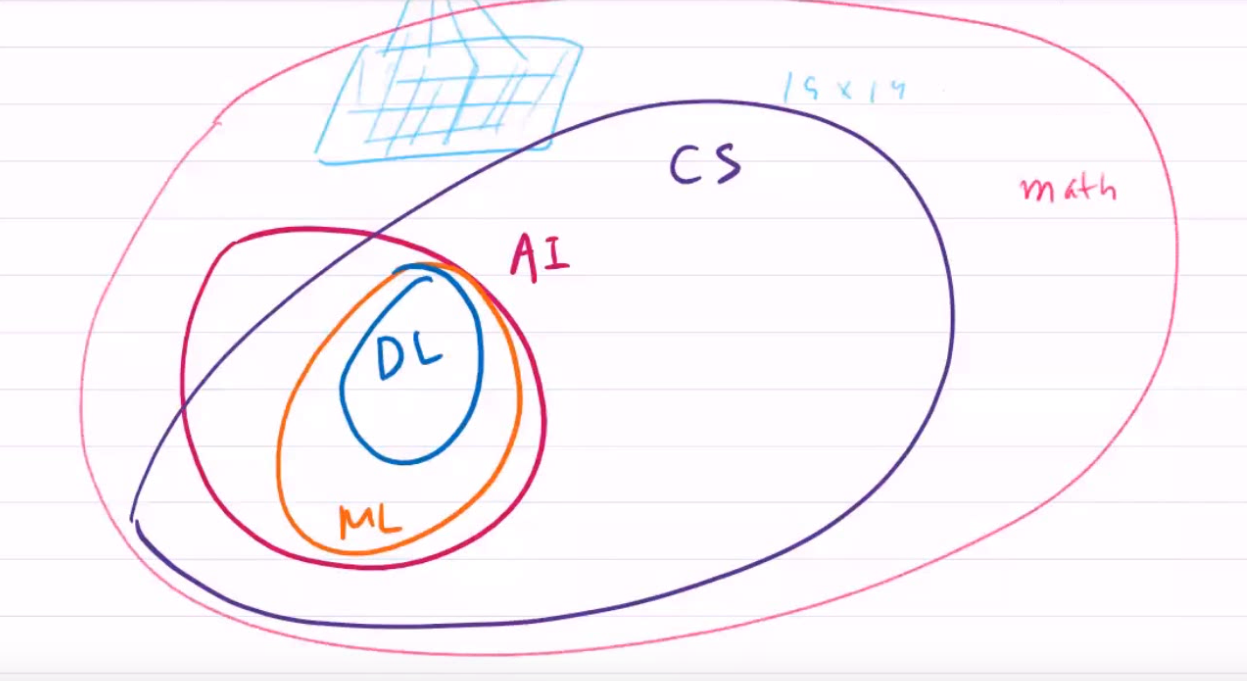 19 x 19
CS
math
AI
DL
ML